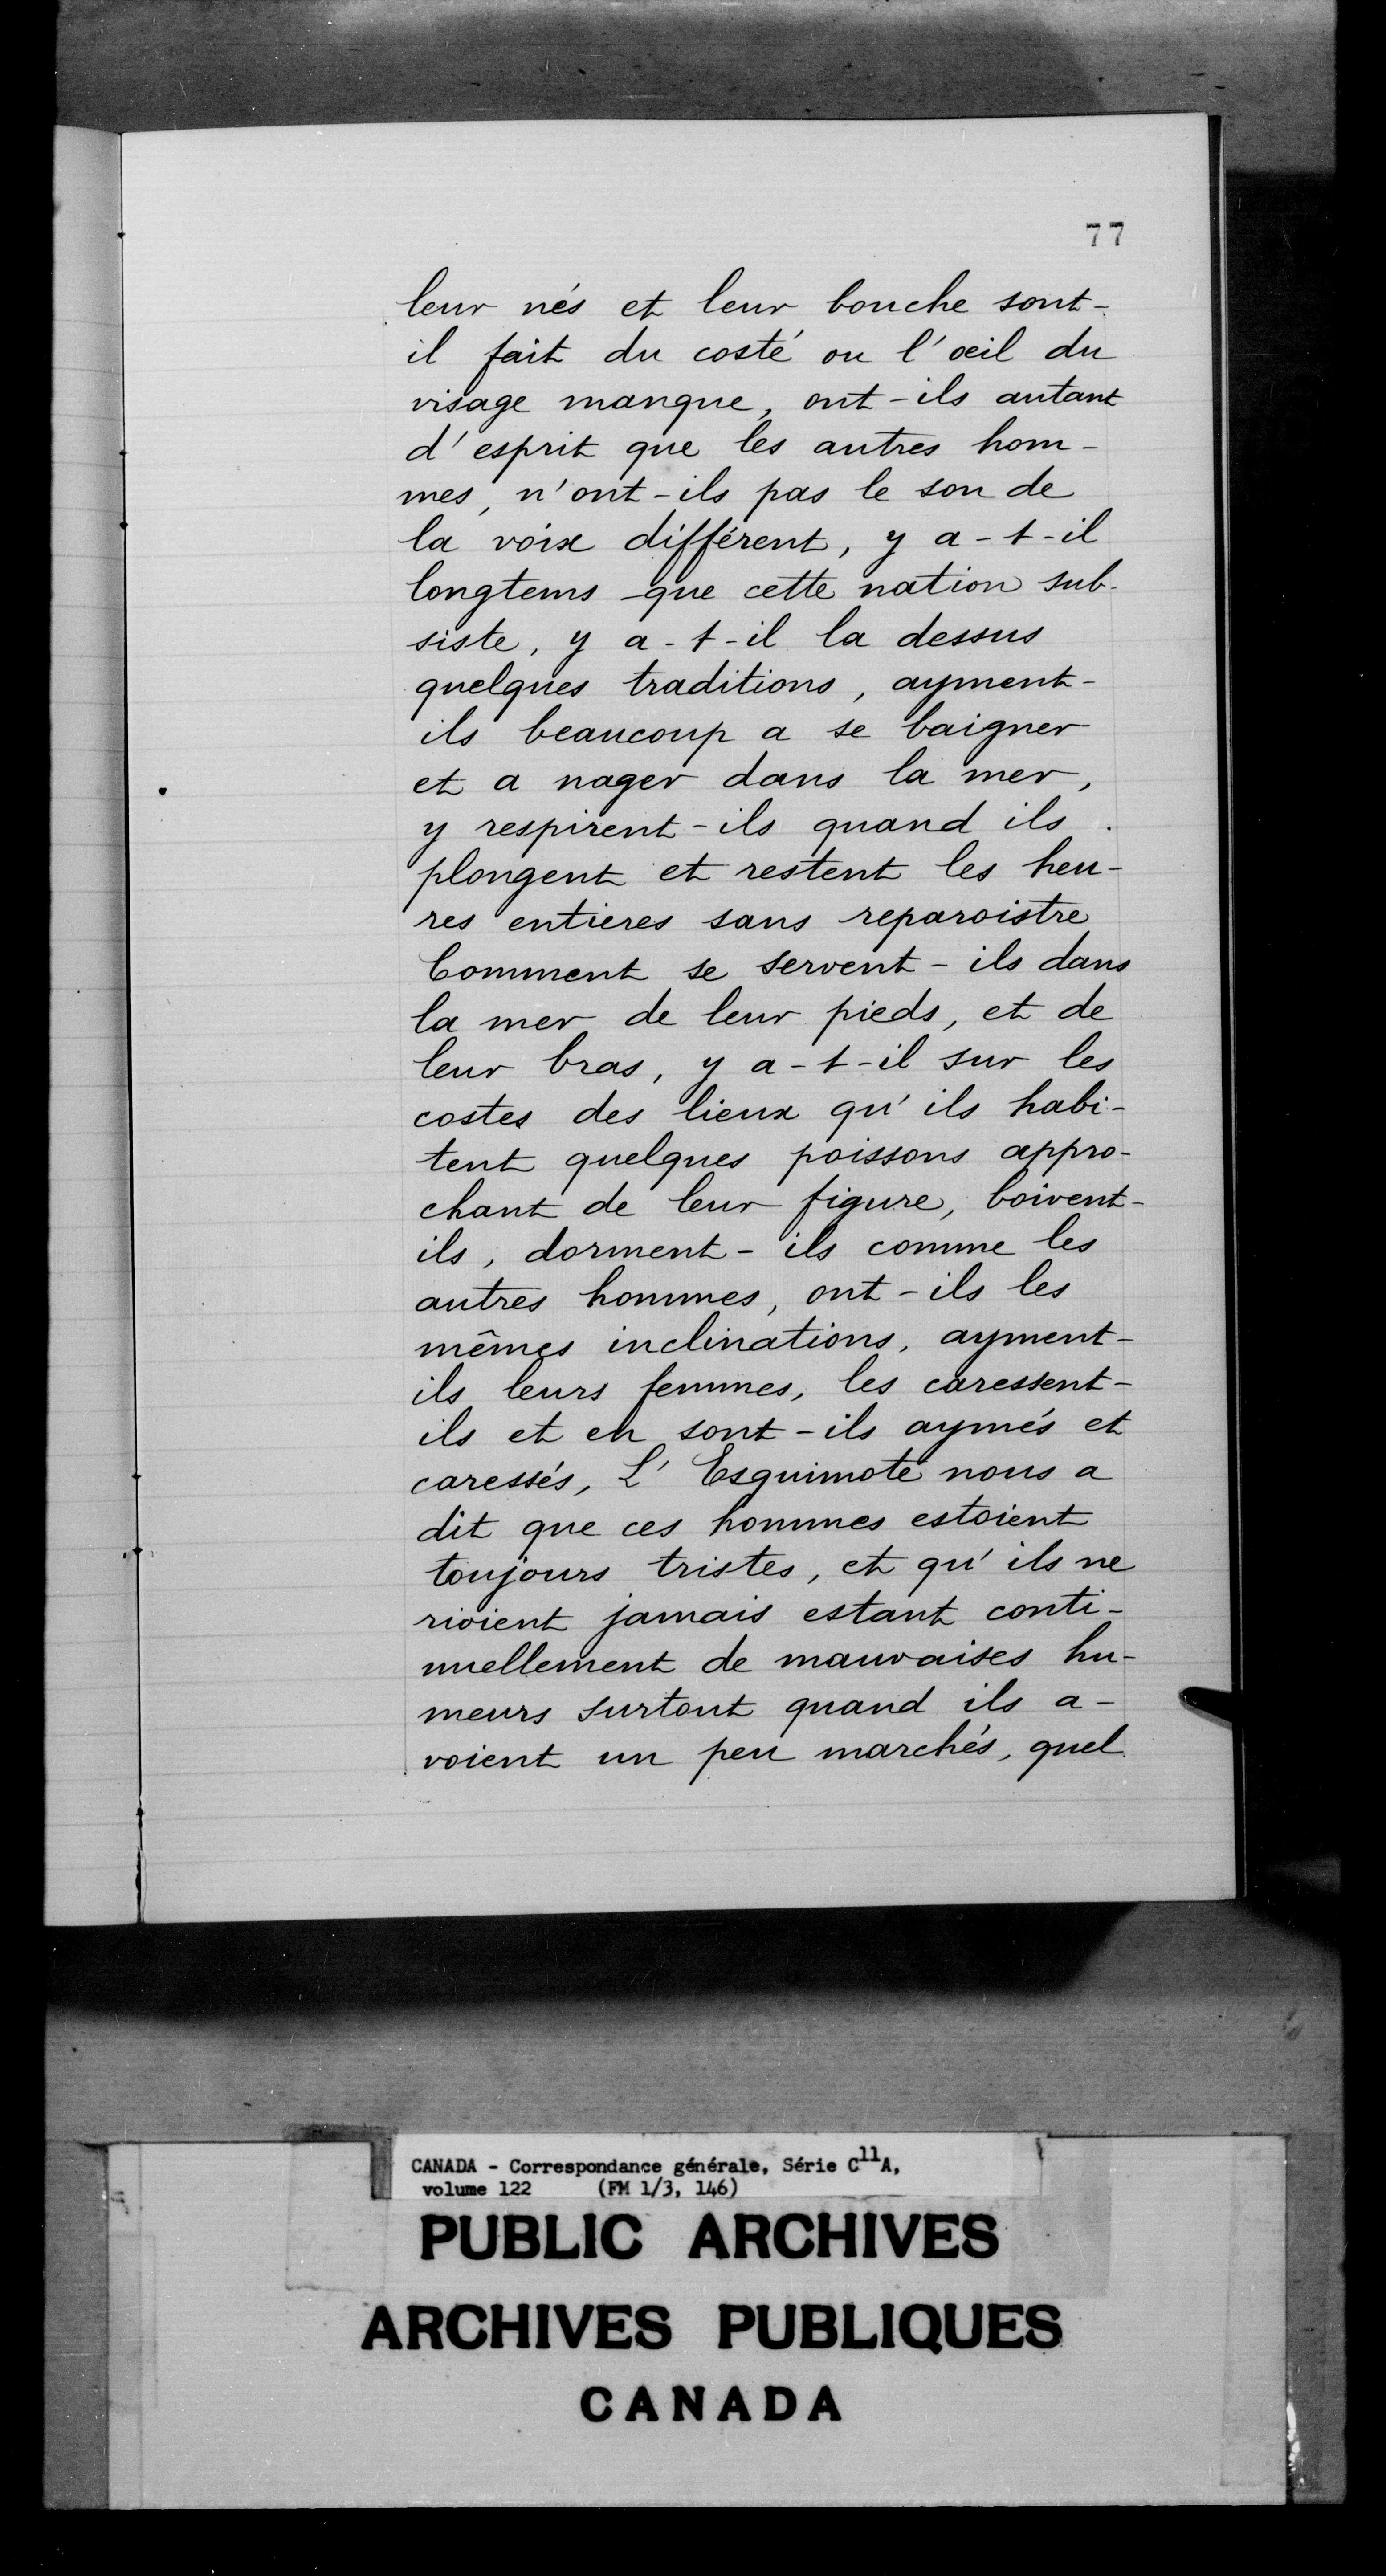 77
leur nés et leur bouche sont-
il fait du costé ou l'œil du
visage manque, ont-ils autant
d'esprit que les autres hom-
mes, n'ont-ils pas le son de
la voix différent, y a-t-il
longtems que cette nation sub-
siste, y a-t-il la dessus
quelques traditions, ayment-
ils beaucoup a se baigner
et a nager dans la mer,
y respirent-ils quand ils
plongent et restent les heu-
res entieres sans reparoistre
Comment se servent-ils dans
la mer de leur pieds, et de
leur bras, y a-t-il sur les
costes des lieux qu'ils habi-
tent quelques poissons appro-
chant de leur figure, boivent-
ils, dorment-ils comme les
autres hommes, ont-ils les
mêmes inclinations, ayment-
ils leurs femmes, les caressent-
ils et en sont-ils aymés et
caressés, L'Esquimote nous a
dit que ces hommes estoient
toujours tristes, et qu'ils ne
rioient jamais estant conti-
nuellement de mauvaises hu-
meurs surtout quand ils a-
voient un peu marchés, quel
CANADA - Correspondance générale, Série C11A,
volume 122 (FM 1/3, 146)
PUBLIC ARCHIVES
ARCHIVES PUBLIQUES
CANADA